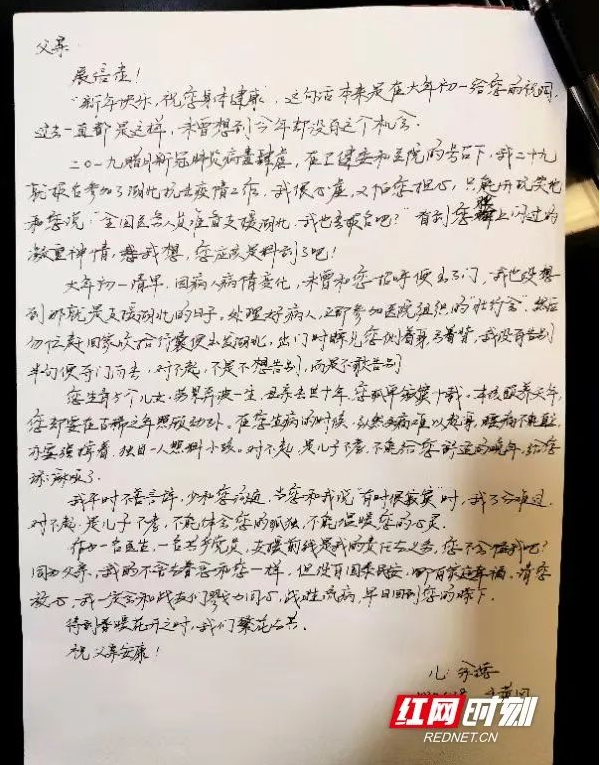 父亲
展信悉！
“新年快乐，祝您身体健康”，这句话本来是在大年初一给您的祝词，
过去一直都是这样，未曾想到今年却没有这个机会。
二〇一九腊月新冠肺炎病毒肆虐，在卫健委和医院的号召下，我二十九
就报名参加了湖北抗击疫情工作，我便心虚，又怕您担心，只能开玩笑地
和您说：“全国医务人员准备支援湖北，我也去报名吧？”看到您脸上闪过的
凝重神情，我想，您应该是料到了吧！
大年初一清早，因病人病情变化，未曾和您招呼便出了门，我也没想
到那就是支援湖北的日子。处理好病人，立即参加医院组织的“壮行会”，然后
匆忙赶回家收拾行囊便出发湖北，出门时瞧见您侧着身弓着背，我没有告别
半句便夺门而去，对不起，不是不想告别，而是不敢告别
您生育5个儿女，劳累奔波一生，母亲去世十年，您孤单寂寞十载。本该颐养天年，
您却要在古稀之年照顾幼孙。在您生病的时候，
亦要强撑着，独自一人照料小孩。对不起，是儿子不孝，不能给您舒适的晚年，给您
添麻烦了。
我平时不善言辞，少和您沟通，当您和我说“有时很寂寞”时，我万分难过，
对不起，是儿子不孝，不能体会您的孤独，不能温暖您的心灵。
作为一名医生，一名共产党员，支援前线是我的责任与义务，您不会怪我吧？
同为父亲，我的不舍与眷恋和您一样，但没有国泰民安，哪有家庭幸福。请您
放心，我一定会和战友们勠力同心，战胜流病，早日回到您的膝下。
待到春暖花开之时，我们繁花与共。
祝父亲安康！
儿：
红网时刻
REDNET.CN